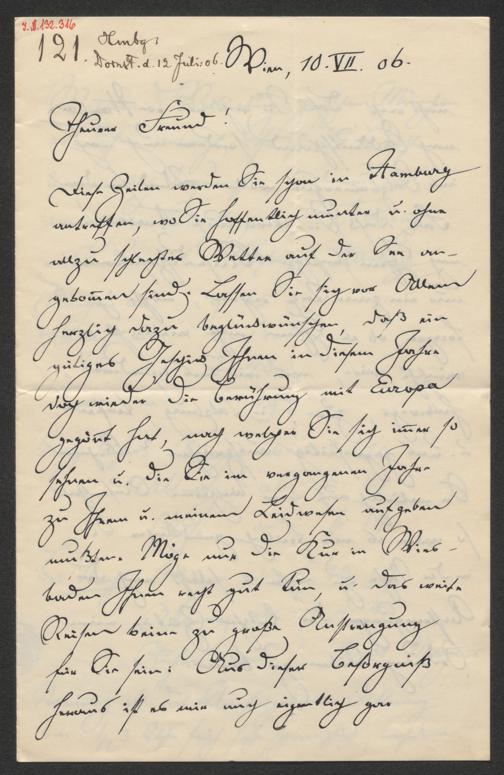 I.N.132.316
121.
Hmbg:
Dornst. d. 12 Juli 06.
Wien, 10. VII. 06.
Theurer Freund!
Diese Zeilen werden Sie schon in Hamburg
antreffen, wo Sie hoffentlich munter u. ohne
allzu schlechtes Wetter auf der See an-
gekommen sind. Lassen Sie sich vor Allem
herzlich dazu beglückwünschen, daß ein
gütiges Geschick Ihnen in diesem Jahre
doch wieder die Berührung mit Europa
gegönt hat, nach welcher Sie sich immer so
sehnen u. die Sie im vergangenen Jahre
zu Ihrem u. meinem Leidwesen aufgeben
mußten. Möge nur die Kur in Wies-
baden Ihnen recht gut tun, u. das weite
Reisen keine zu große Anstrengung
für Sie sein! Aus dieser Besorgniß
heraus ist es mir auch eigentlich gar